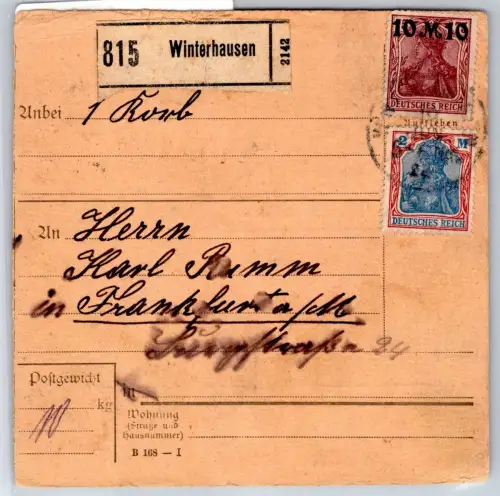 815 Winterhausen 2142
10 M 10
DEUTSCHES REICH
Aufkleben
2 M
DEUTSCHES REICH
Anbei 1 Korb
An Herrn
Karl Rumm
in Frankfurt a/M
24
Postgewicht
10 kg
in
Wohnung
(Straße und
Hausnummer)
B 168 – I